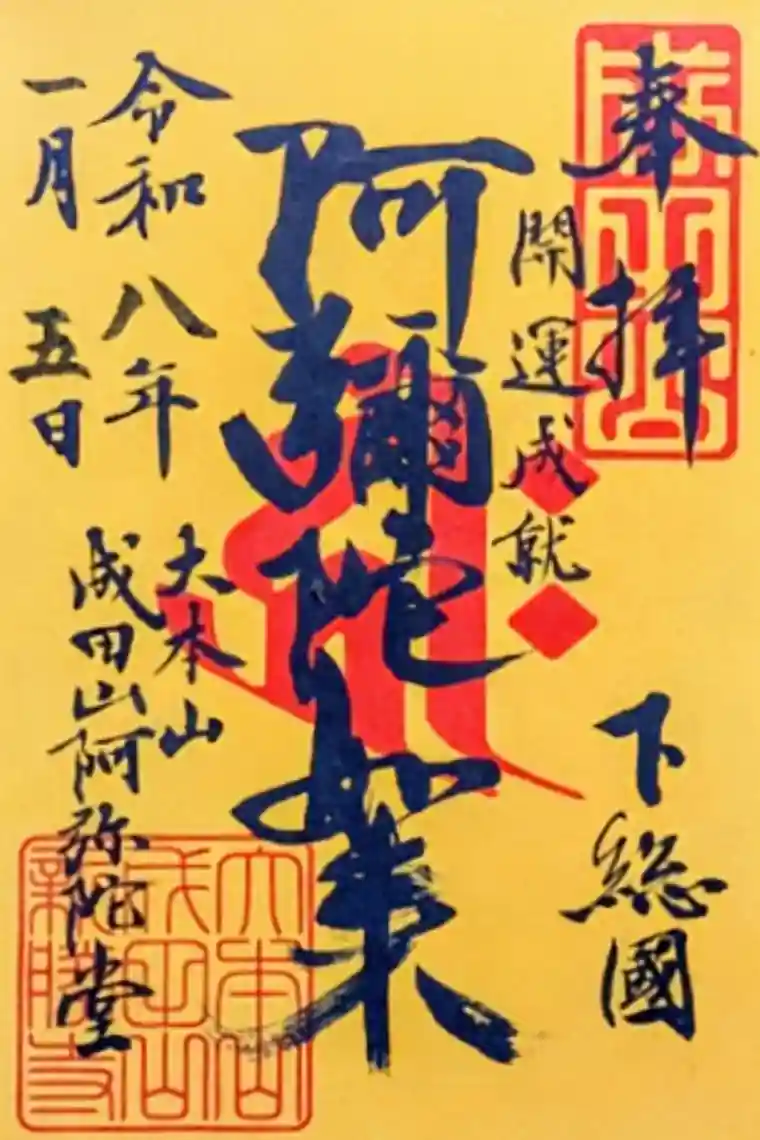 奉拝
下総國
開運成就
阿彌陀如来
令和八年
一月五日
大本山
成田山阿弥陀堂
大本山
成田山
新勝寺